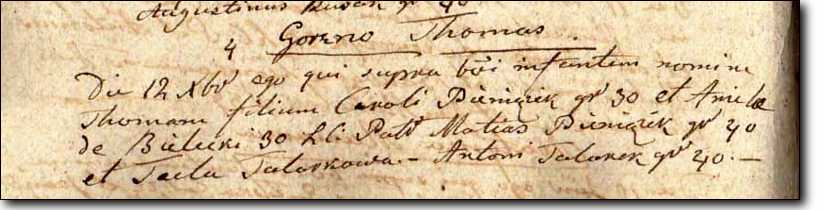 Augustinus Kusak gr 40
4 Goreno Thomas.
Die 12 Xbr ego qui supra bӓi infantem nomine
Thomam filium Caroli Pieniązek gr 30 et Anielae
de Bielecki 30 L.C. Patr Matias Pieniązek gr 40
et Tecla Talarkowa. – Antoni Talarek gr 40. –